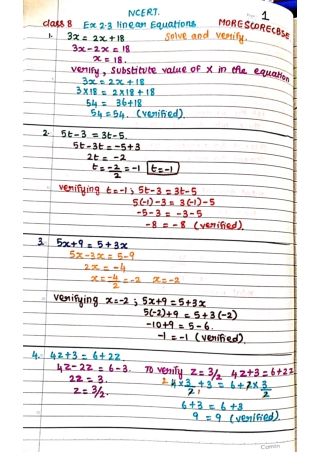 NCERT. 1
class 8 Ex 2.3 linear Equations MORESCORECBSE
1. 3x = 2x+18 Solve and verify.
3x-2x = 18
x = 18.
verify, substitute value of x in the equation
3x = 2x+18
3×18 = 2×18+18
54 = 36+18
54 = 54. (verified).
2. 5t-3 = 3t-5.
5t-3t = -5+3
2t = -2
t = -2/2 = -1 t=-1
verifying t=-1; 5t-3 = 3t-5
5(-1)-3 = 3(-1)-5
-5-3 = -3-5
-8 = -8 (verified).
3. 5x+9 = 5+3x
5x-3x = 5-9
2x = -4
x = -4/2 = -2 x=-2
verifying x=-2; 5x+9 = 5+3x
5(-2)+9 = 5+3(-2)
-10+9 = 5-6.
-1 = -1 (verified).
4. 4z+3 = 6+2z.
4z-2z = 6-3. To verify z=3/2 4z+3 = 6+2z
2z = 3. 2 4×3/2 1 +3 = 6+2×3/2
z = 3/2. 6+3 = 6+3
9 = 9 (verified).